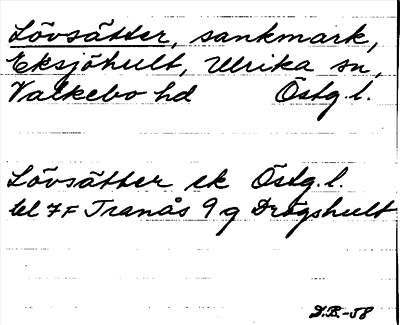 Lövsätter, sankmark,
Eksjöhult, Ulrika sn,
Valkebo hd Östg.l.
Lövsätter ek Östg.l.
bl 7F Tranås 9 g Drögshult
D.B.-58